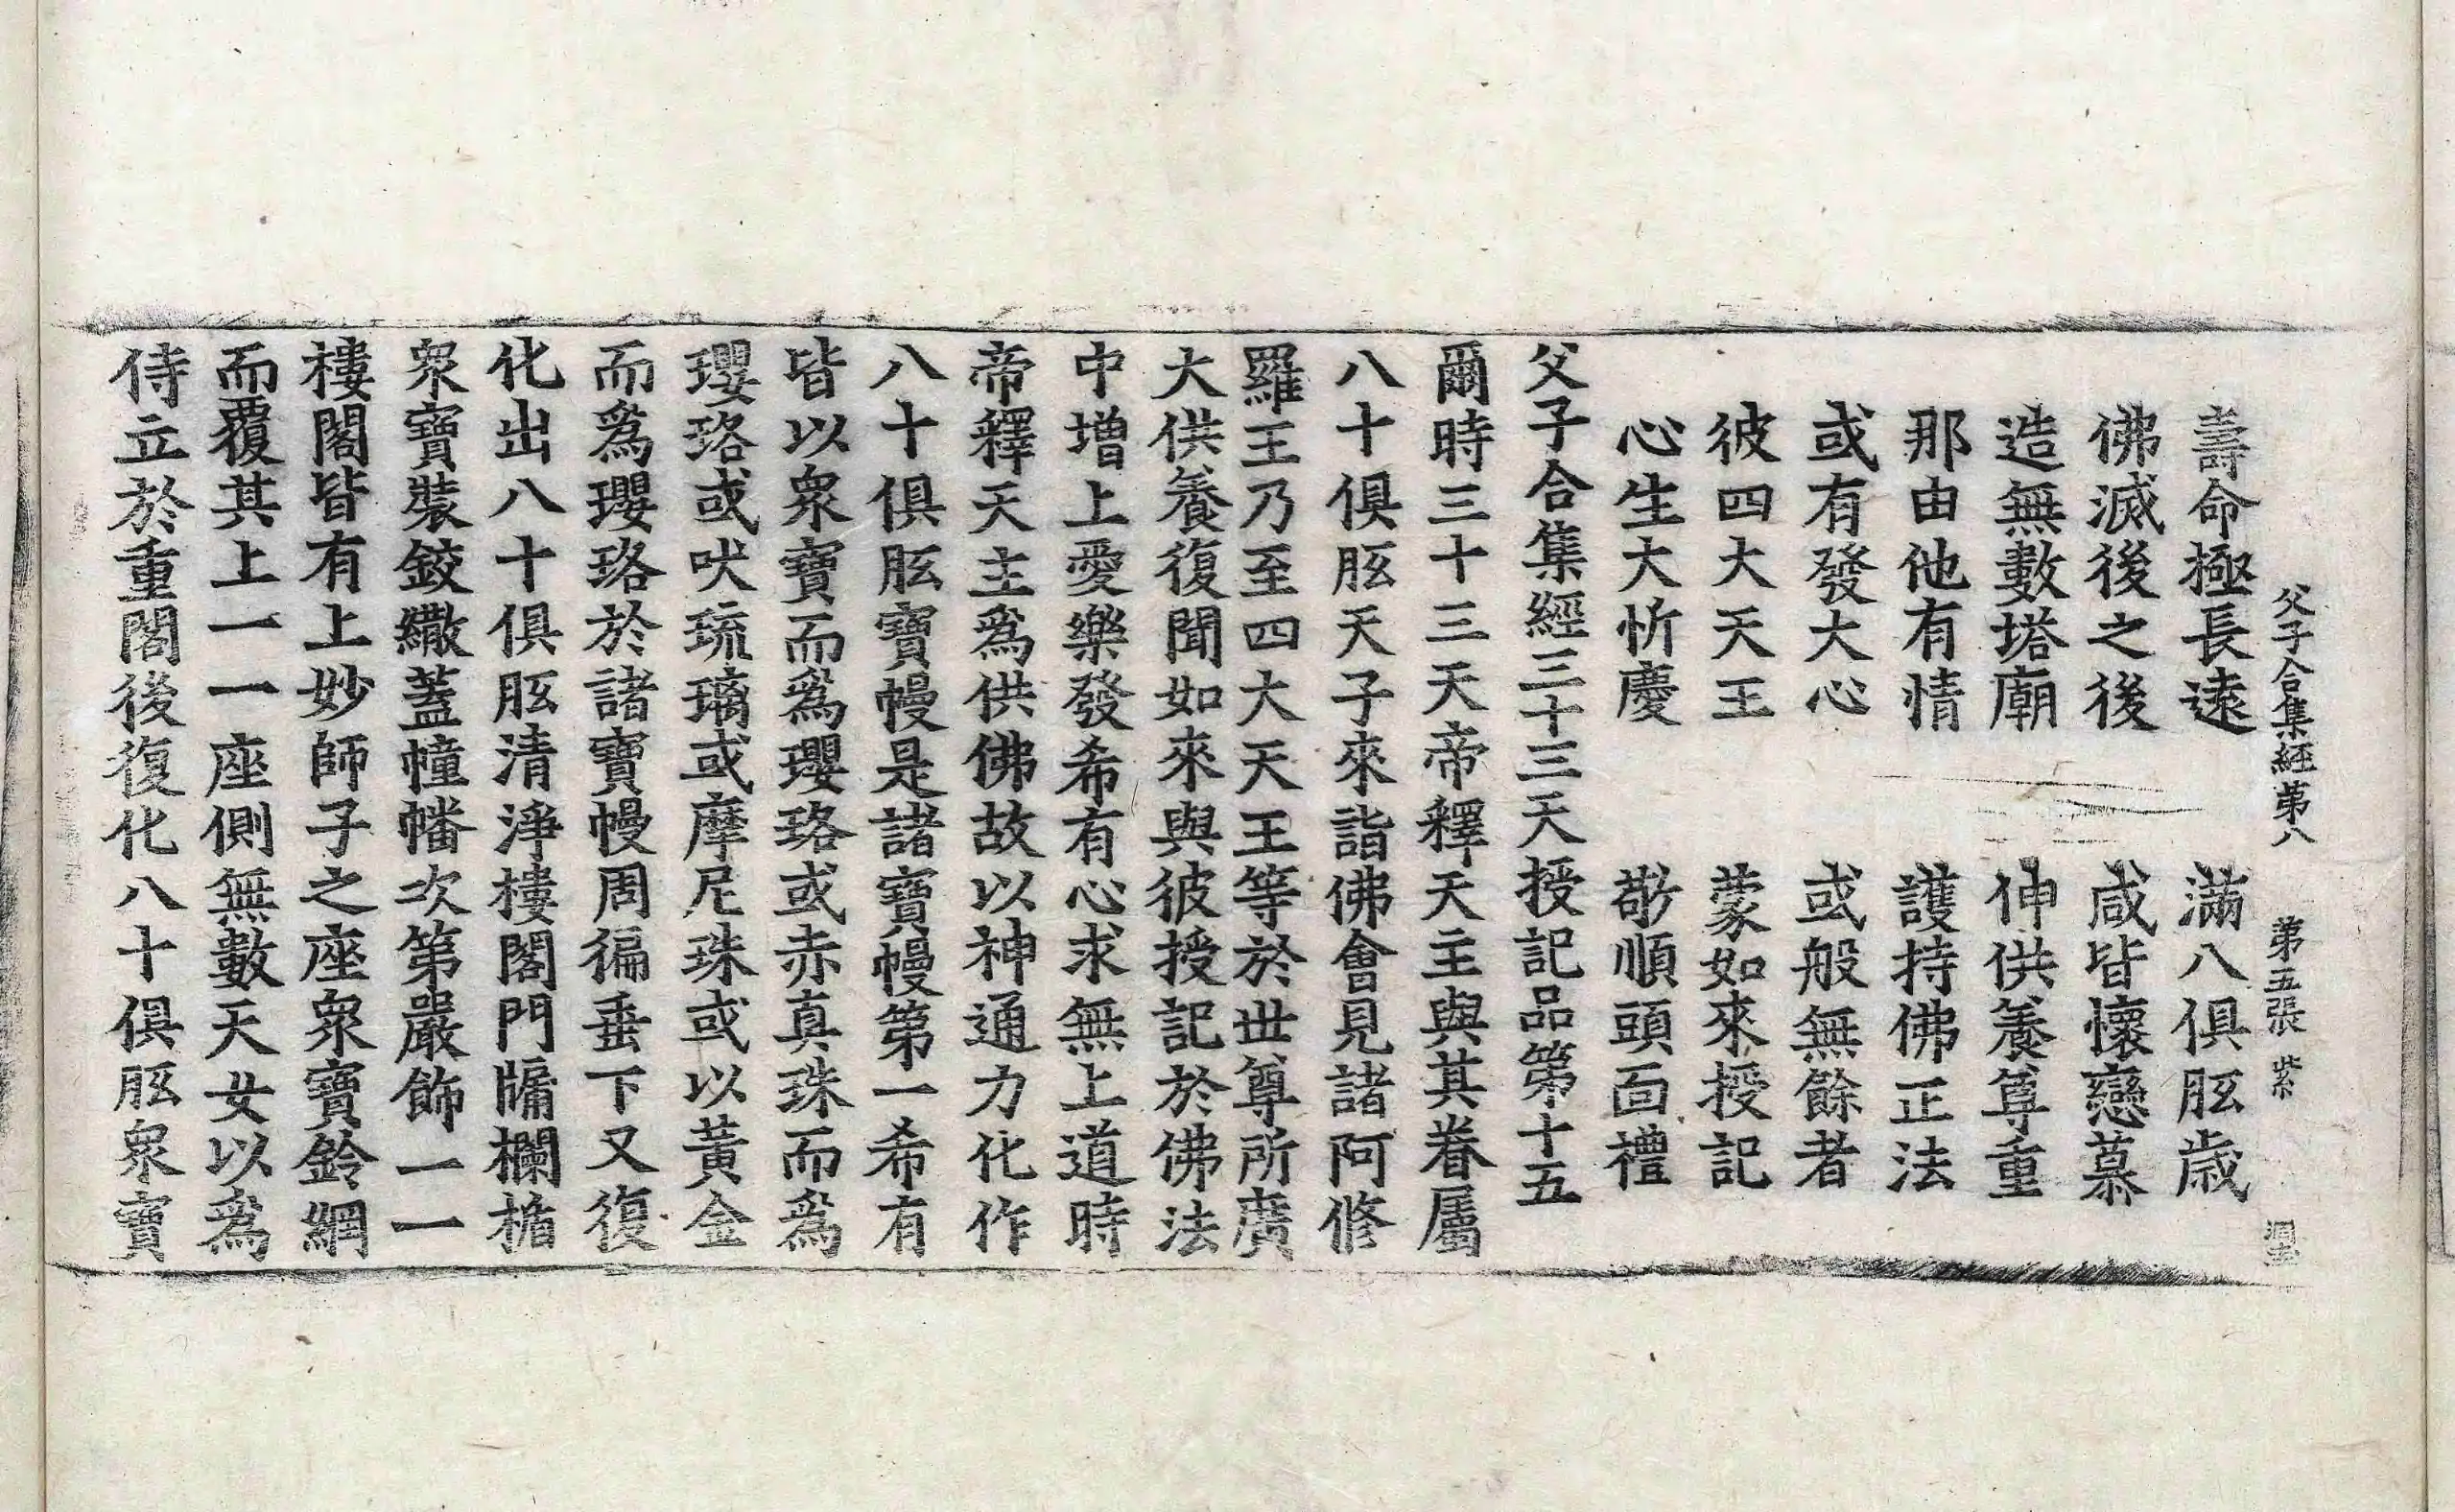 父子合集經第八　第五張　紫
壽命極長遠　滿八俱胝歲
佛滅後之後　咸皆懷戀慕
造無數塔廟　伸供養尊重
那由他有情　護持佛正法
或有發大心　或般無餘者
彼四大天王　蒙如來授記
心生大忻慶　敬順頭面禮
父子合集經三十三天授記品第十五
爾時三十三天帝釋天主與其眷屬
八十俱胝天子來詣佛會見諸阿修
羅王乃至四大天王等於世尊所廣
大供養復聞如來與彼授記於佛法
中增上愛樂發希有心求無上道時
帝釋天主爲供佛故以神通力化作
八十俱胝寶幔是諸寶幔第一希有
皆以衆寶而爲瓔珞或赤真珠而爲
瓔珞或吠琉璃或摩尼珠或以黃金
而爲瓔珞於諸寶幔周徧垂下又復
化出八十俱胝清淨樓閣門牖欄楯
衆寶裝鉸繖蓋幢幡次第嚴飾一一
樓閣皆有上妙師子之座衆寶鈴網
而覆其上一一座側無數天女以爲
侍立於重閣後復化八十俱胝衆寶